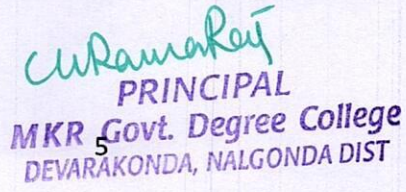 PRINCIPAL
MKR Govt. Degree College
5
DEVARAKONDA, NALGONDA DIST